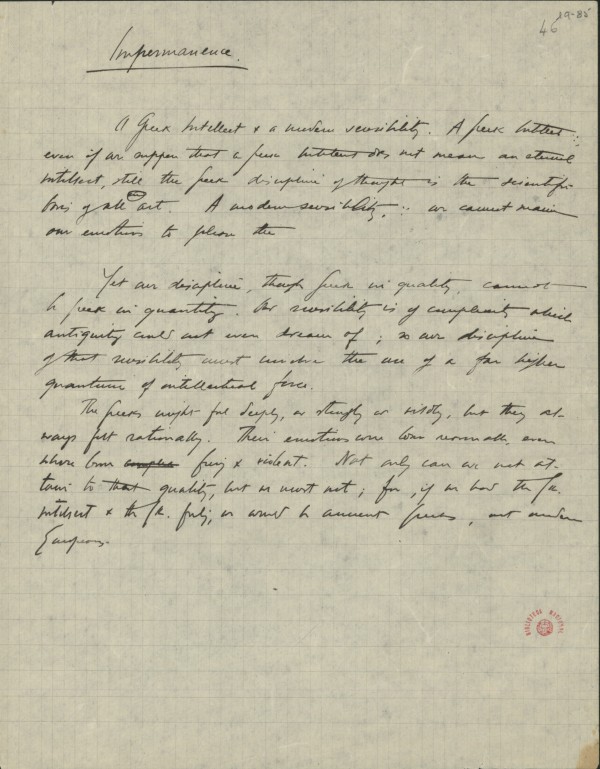 46
19-85
Impermanence.
A Greek intellect & a modern sensibility. A Greek intellect ∴
even if we suppose that a Greek intellect does not mean an eternal
intellect, still the Greek discipline of thought is the scientific
basis of all art. A modern sensibility, ∴ we cannot
our emotions to please the
Yet our discipline, though Greek in quality, cannot
be Greek in quantity. Our sensibility is of complexity which
antiquity could not even dream of; so our discipline
of that sensibility must involve the use of a far higher
quantum of intellectual force.
The Greeks might feel deeply, or strongly or wildly, but they al-
ways felt rationally. Their emotions were born normally, even
where born fiery & violent. Not only can we not at-
tain to that quality, but we must not; for, if we had the Gr.
intellect & the Gr. feeling, we would be ancient Greeks, not modern
Europeans.
BIBLIOTECA NACIONAL